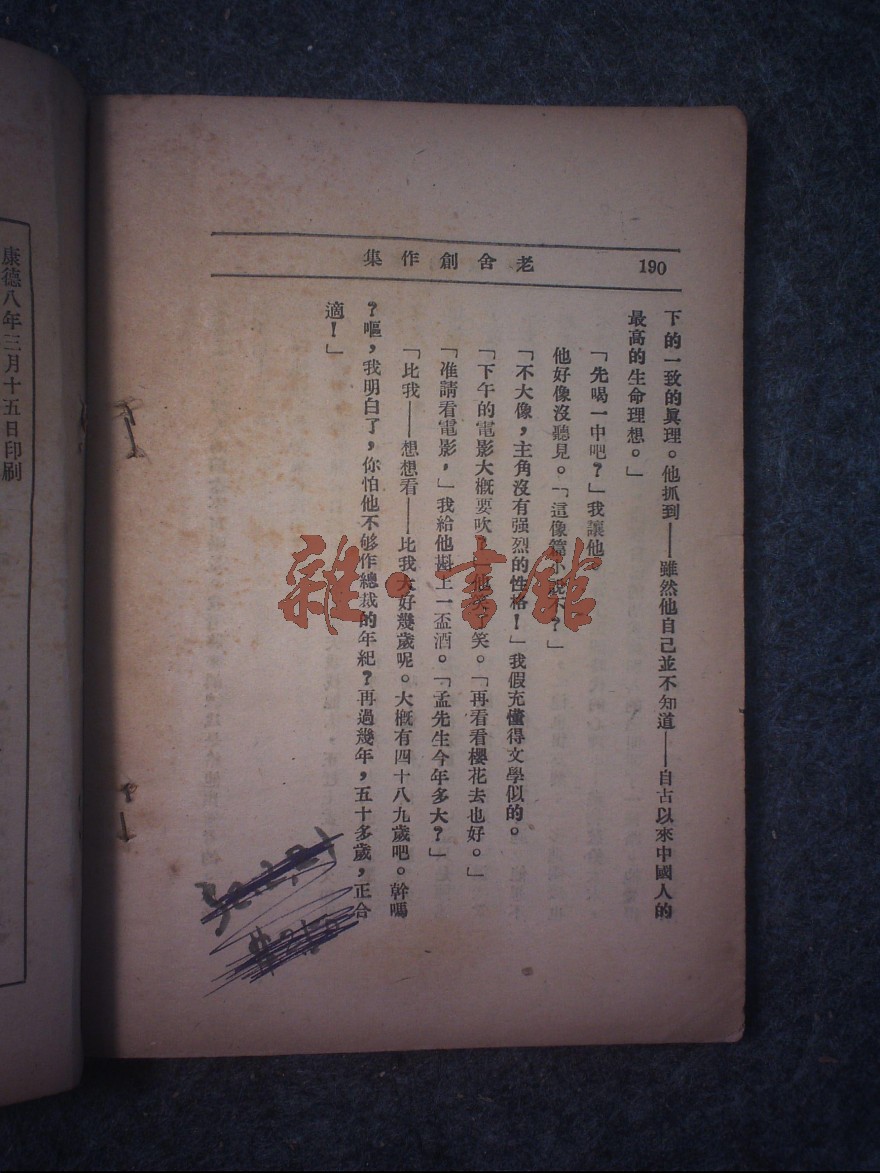 190
老舍創作集
下的一致的眞理。他抓到——雖然他自己並不知道——自古以來中國人的
最高的生命理想。」
「先喝一中吧?」我讓他
他好像沒聽見。「這像篇小說不?」
「不大像,主角沒有强烈的性格!」我假充懂得文學似的。
「下午的電影大概要吹。」他笑了笑。「再看看櫻花去也好。」
「准請看電影,」我給他斟上一盃酒。「孟先生今年多大?」
「比我——想想看——比我大好幾歲呢。大概有四十八九歲吧。幹嗎
?嘔,我明白了,你怕他不够作總裁的年紀?再過幾年,五十多歲,正合
適!」
康德八年三月十五日印刷
雜·書館